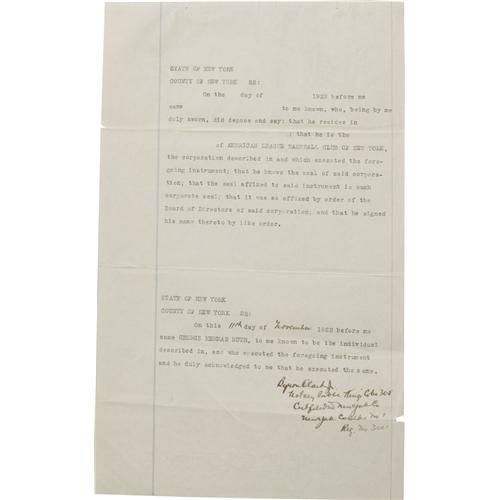 STATE OF NEW YORK
COUNTY OF NEW YORK SS:
On the day of 1922 before me
came to me known, who, being by me
duly sworn, did depose and say: that he resides in
; that he is the
of AMERICAN LEAGUE BASEBALL CLUB OF NEW YORK,
the corporation described in and which executed the fore-
going instrument; that he knows the seal of said corpora-
tion; that the seal affixed to said instrument is such
corporate seal; that it was so affixed by order of the
Board of Directors of said corporation; and that he signed
his name thereto by like order.
STATE OF NEW YORK
COUNTY OF NEW YORK SS:
On this 11th day of November 1922 before me
came GEORGE HERMAN RUTH, to me known to be the individual
described in, and who executed the foregoing instrument
and he duly acknowledged to me that he executed the same.
Byron Clark Jr.
Notary Public Kings Co No 305
Cert filed in New York Co
New York Co No
Reg. No